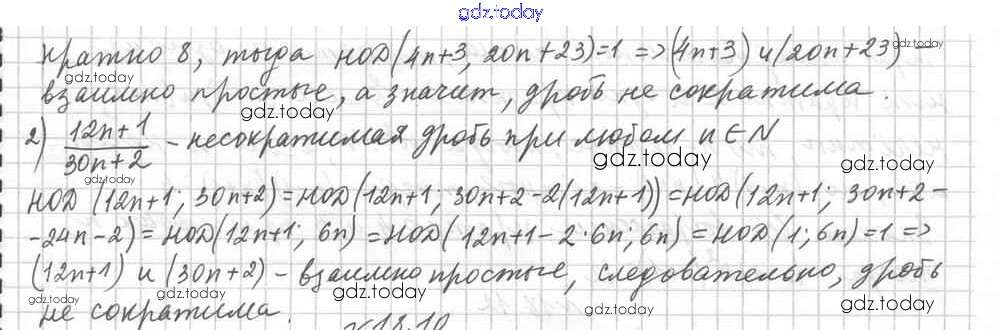 gdz.today
кратно 8, тогда НОД(4n+3, 20n+23)=1 => (4n+3) и (20n+23) gdz.today
gdz.today gdz.today
взаимно простые, а значит, дробь не сократима.
gdz.today gdz.today
2) \frac{12n+1}{30n+2} - несократимая дробь при любом n ∈ N
gdz.today gdz.today gdz.today
НОД (12n+1; 30n+2) = НОД(12n+1; 30n+2-2(12n+1)) = НОД(12n+1; 30n+2-
gdz.today gdz.today
-24n-2) = НОД(12n+1; 6n) = НОД(12n+1-2·6n; 6n) = НОД(1; 6n) = 1 =>
gdz.today gdz.today
(12n+1) и (30n+2) - взаимно простые, следовательно, дробь
gdz.today gdz.today gdz.today
не сократима.